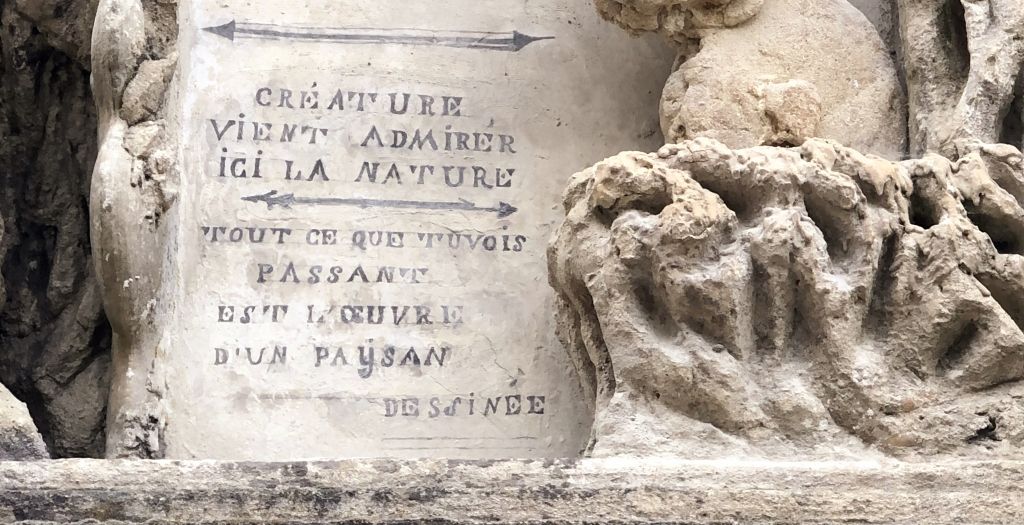 CRÉATURE
ViENT ADMiRER
iCi LA NATURE
TOUT CE QUE TU VOiS
PASSANT
EST L'ŒUVRE
D'UN PAŸSAN
DESSiNÉE